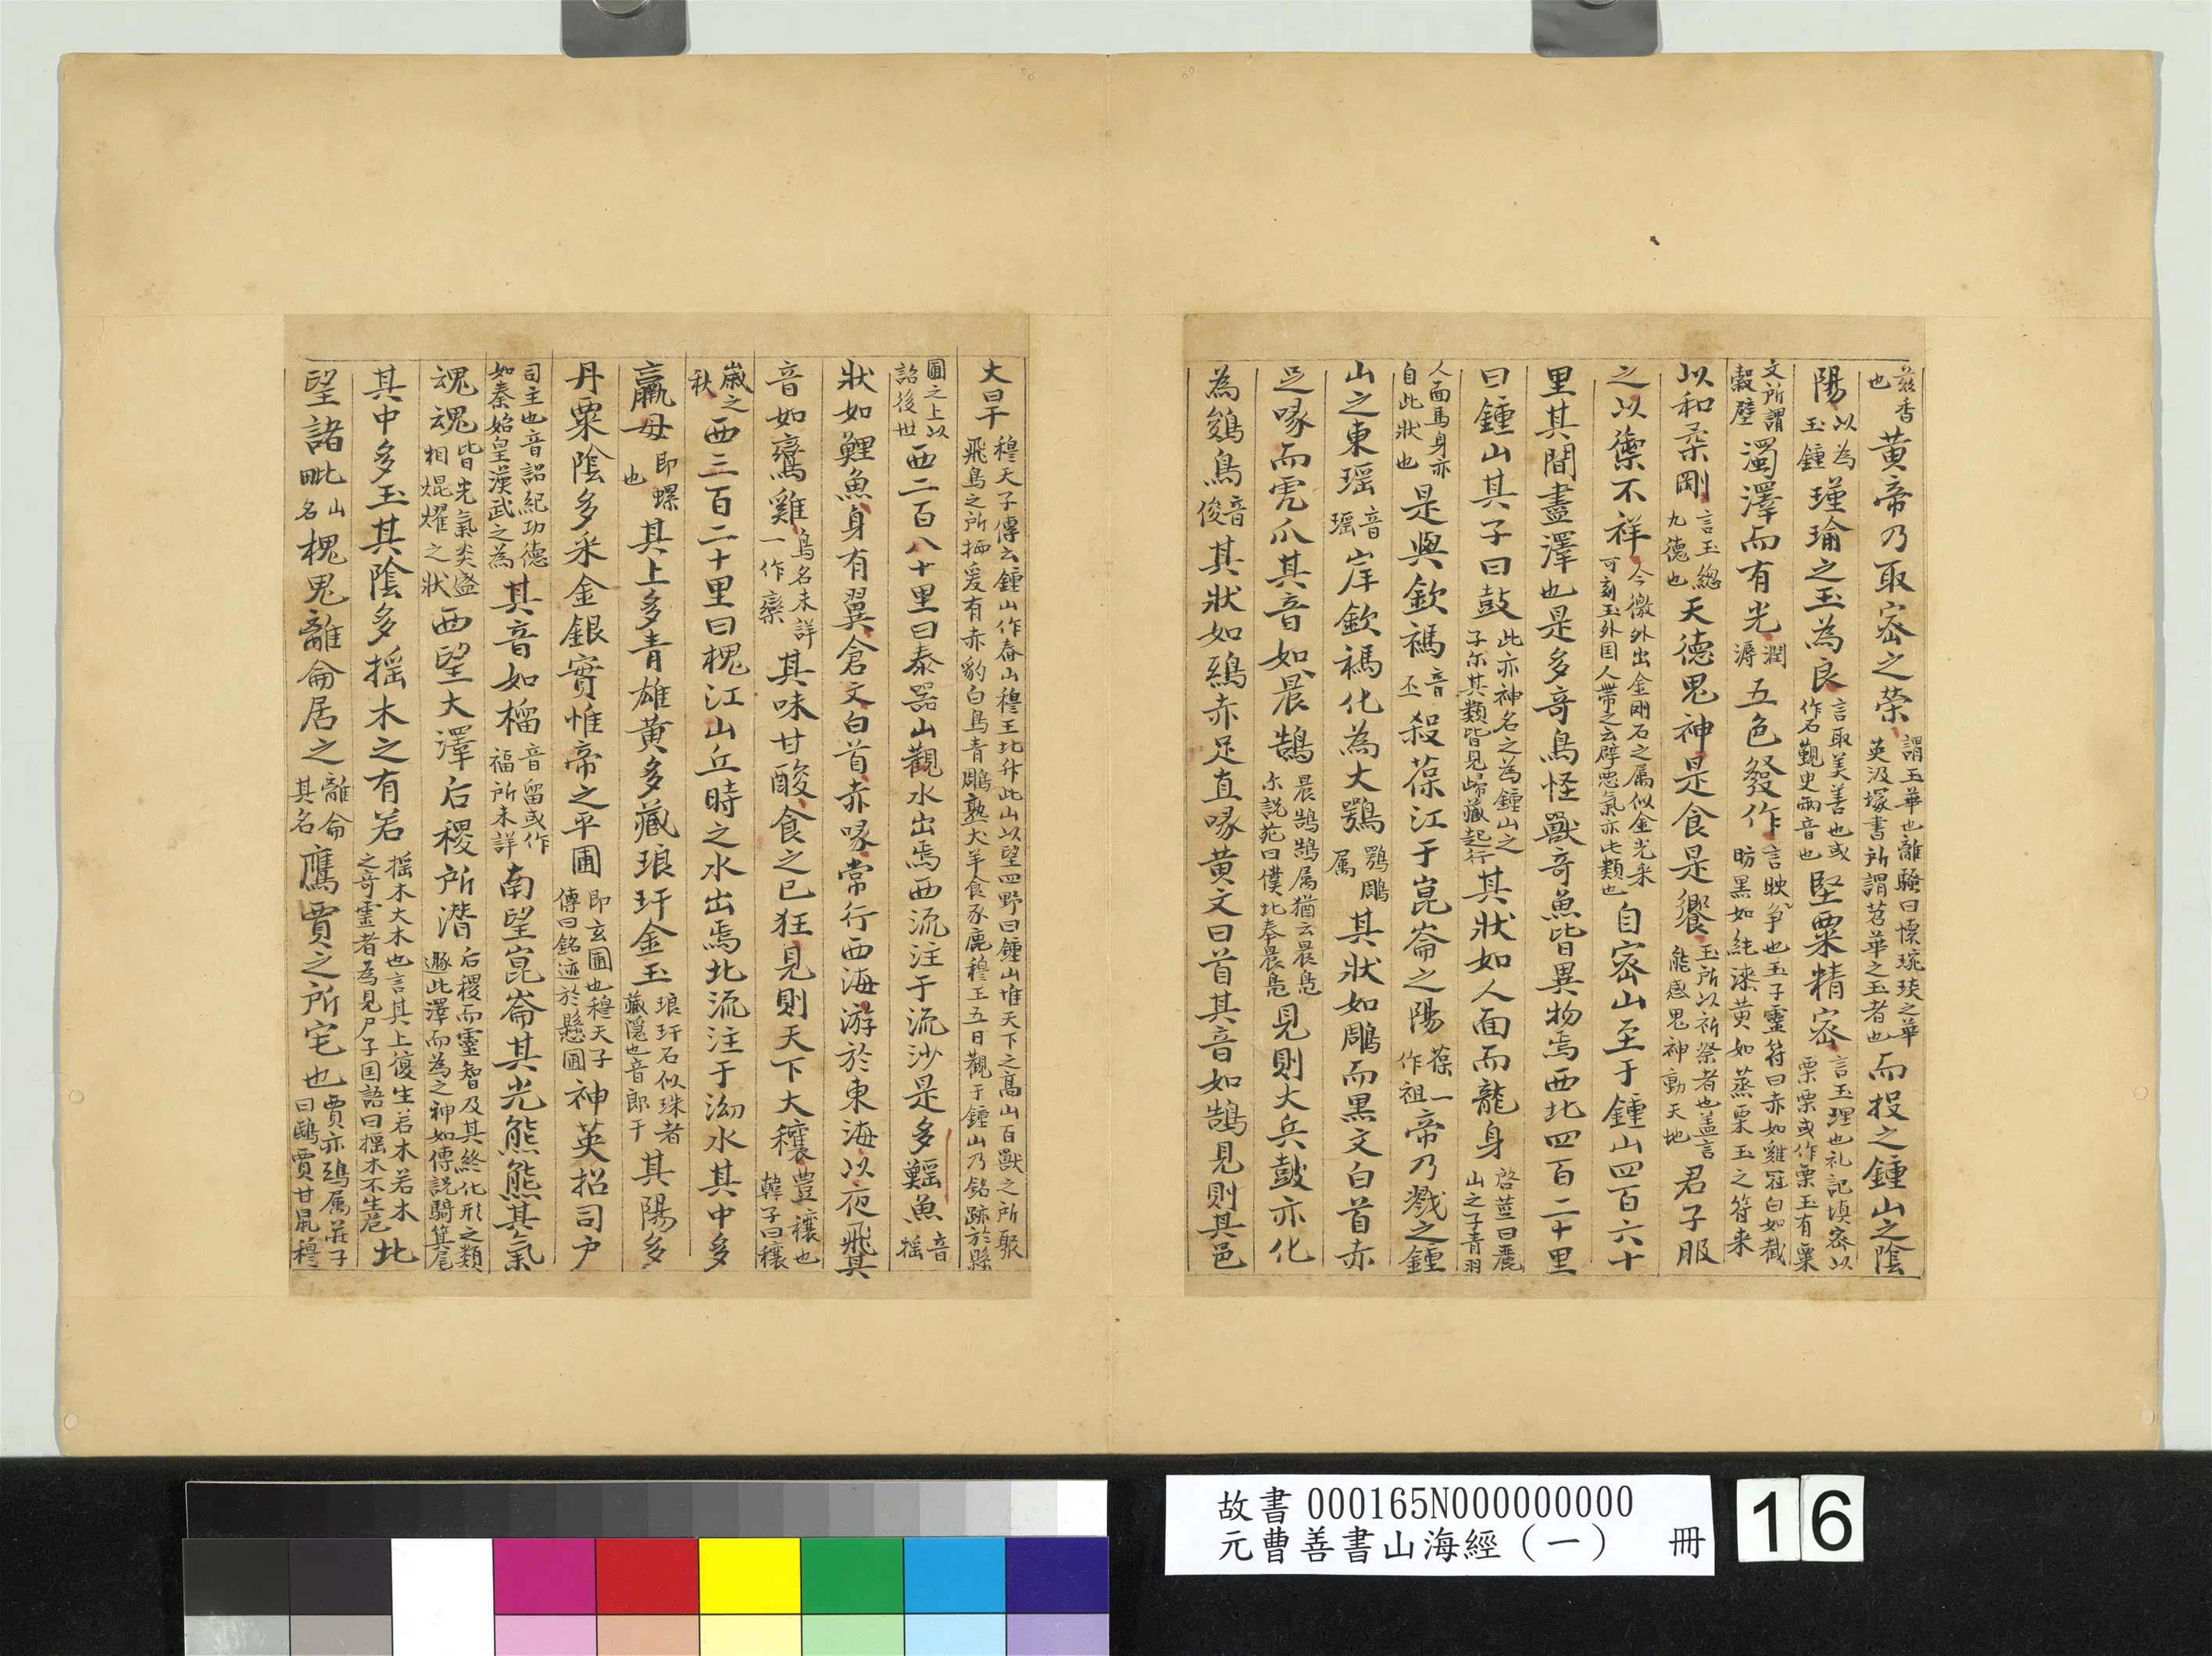 茲香也黃帝乃取宻之荣謂玉華也離騷曰懷琬琰之華英汲塚書所謂苕華之玉者也而投之鍾山之陰
陽以為玉鍾瑾瑜之玉為良言取美善也或作石覲史兩音也堅粟精宻言玉理也礼記填宻以栗栗或作栗玉有粟
文所謂穀壁濁澤而有光潤溽五色發作言映争也玉子靈符曰赤如雞冠白如截昉黑如純漆黄如蒸栗玉之符来
以和柔剛言玉緫九德也天德鬼神是食是饗玉所以祈祭者也盖言能感鬼神動天地君子服
之以禦不祥今徼外出金剛石之属似金光米可刻玉外囯人帶之云辟惡氣亦此類也自宻山至于鍾山四百六十
里其間盡澤也是多竒鳥怪獸竒魚皆異物焉西北四百二十里
曰鍾山其子曰鼓此亦神名之為鍾山之子尔其類皆見歸藏起行其狀如人面而龍身啓莁曰麗山之子青羽
人面馬身亦自此狀也是與欽䲹音丕殺葆江于崑崙之陽葆一作祖帝乃戮之鍾
山之東瑶音瑶岸欽䲹化為大鶚鶚鵰属其狀如鵰而黒文白首赤
足喙而虎爪其音如晨鵠晨鵠鵠属猶云晨鳧尔説苑曰僕北奉晨鳧見則大兵鼓亦化
為鵕鳥音俊其狀如鴟赤足直喙黄文曰首其音如鵠見則其邑
大旱穆天子傳云鍾山作舂山穆王北升此山以望四野曰鍾山惟天下之髙山百獸之所聚飛鳥之所栖爰有赤豹白鳥青鵰孰犬羊食豕鹿穆王五日觀于鍾山乃銘跡於縣
圃之上以詔後世西二百八十里曰泰噐山觀水出焉西流注于流沙是多鰩魚音揺
狀如鯉魚身有翼倉文白首赤喙常行西海游於東海以夜飛其
音如鸞雞鳥名未詳一作欒其味甘酸食之已狂見則天下大穰豊穰也韓子曰穰
嵗之秋西三百二十里曰槐江山丘時之水出焉北流注于泑水其中多
蠃母即螺也其上多青雄黄多藏琅玕金玉琅玕石似珠者藏隱也音郎干其陽多
丹粟隂多采金銀實惟帝之平圃即玄圃也穆天子傳曰銘迹於懸圃神英招司户
司主也音詔紀功德如秦始皇漢武之為其音如榴音留或作福所未詳南望崑崙其光熊熊其氣
魂魂皆光氣炎盛相焜燿之狀西望大澤后稷所潜后稷而靈智及其終化形之類遯此澤而為之神如傅說騎箕尾
其中多玉其隂多揺木之有若揺木大木也言其上復生若木若木之竒靈者為見尸子囯語曰揺木不生危北
望諸毗山名槐鬼離侖居之離侖其名鷹賈之所宅也賈亦鴟属莊子曰鴟賈甘鼠穆
故書000165N000000000
元曹善書山海經（一） 冊
16